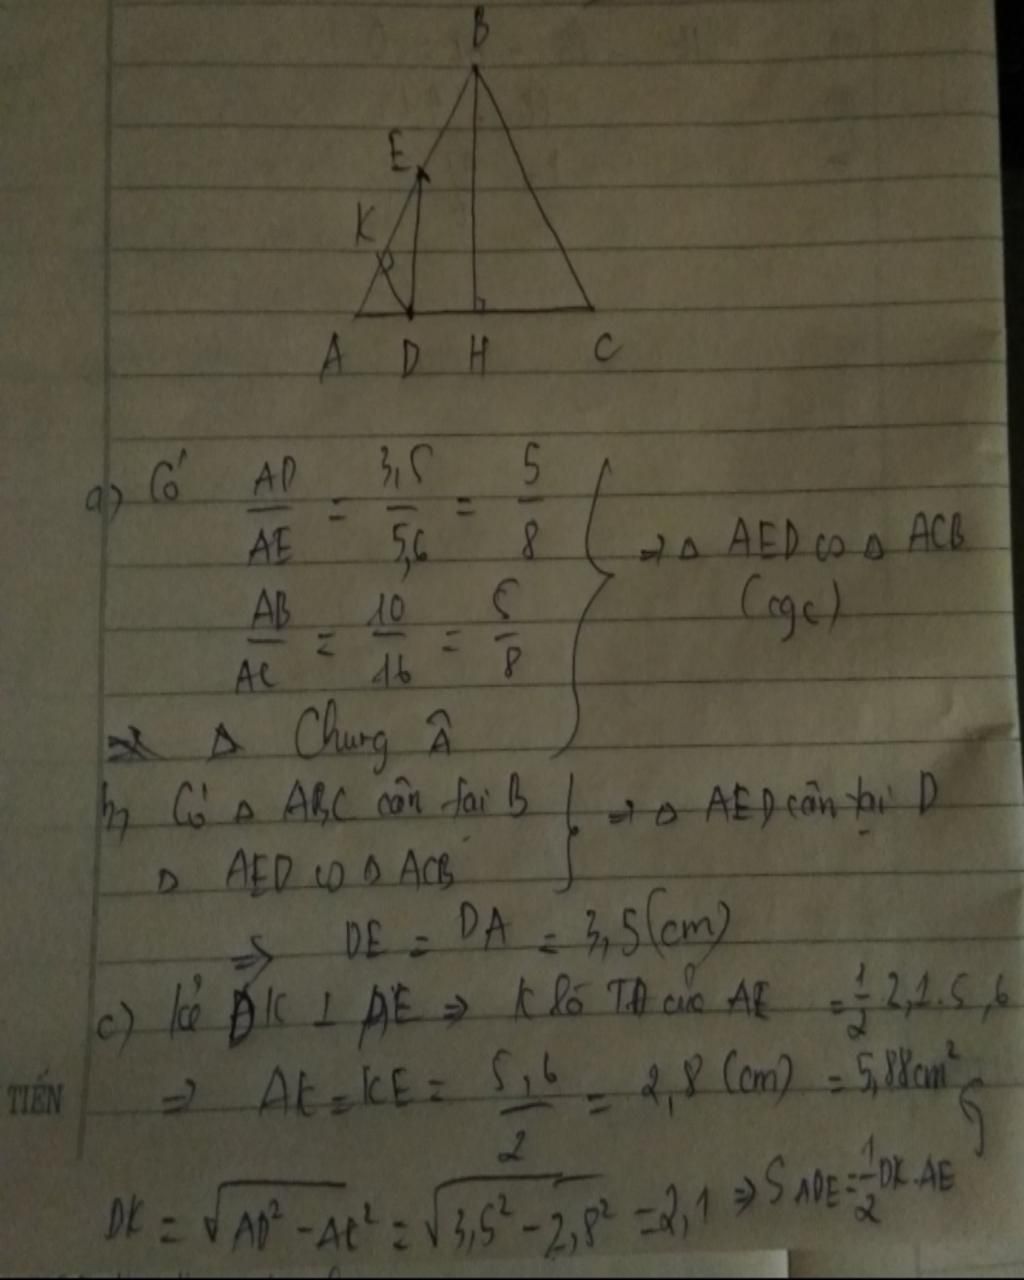 B
E
K
A D H C
a) Có AD/AE = 3,5/5,6 = 5/8
AB/AC = 10/16 = 5/8
⇒ Δ AED ∽ Δ ACB
(cgc)
Δ Chung Â
b, Có Δ ABC cân tại B
Δ AED ∽ Δ ACB
⇒ Δ AED cân tại D
⇒ DE = DA = 3,5 (cm)
c) Kẻ DK ⊥ AE ⇒ K là TĐ của AE = 1/2 2,1.5,6
⇒ AK = KE = 5,6/2 = 2,8 (cm) = 5,88cm²
TIẾN
DK = √AD² - AK² = √3,5² - 2,8² = 2,1 ⇒ S ADE = 1/2 DK.AE